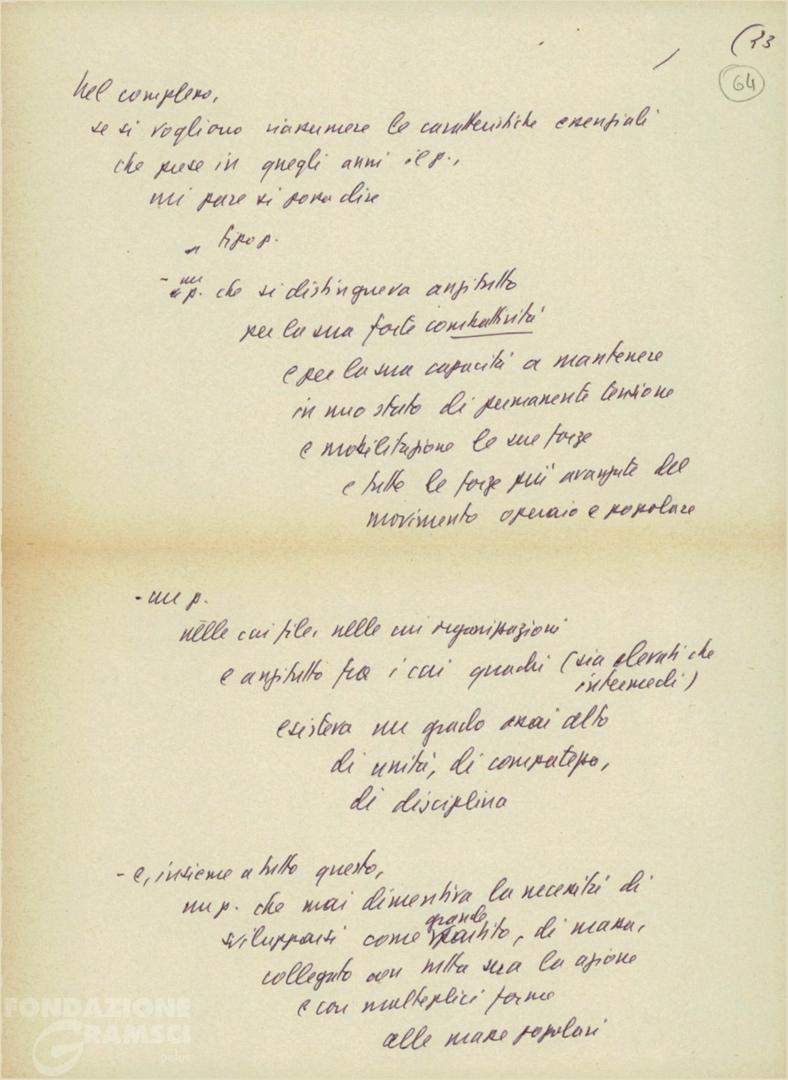 (33
64
Nel complesso,
se si vogliono riassumere le caratteristiche essenziali
che prese in quegli anni il p.,
mi pare si possa dire
tipo p.
- un p. che si distingueva anzitutto
per la sua forte combattività
e per la sua capacità a mantenere
in uno stato di permanente tensione
e mobilitazione le sue forze
e tutte le forze più avanzate del
movimento operaio e popolare
- un p.
nelle cui file, nelle cui organizzazioni
e anzitutto fra i cui quadri (sia elevati che
intermedi)
esisteva un grado assai alto
di unità, di compatezza,
di disciplina
- e, insieme a tutto questo,
un p. che mai dimentiva la necessità di
svilupparsi come grande partito, di massa,
collegato con tutta sua la azione
e con molteplici forme
alle masse popolari
FONDAZIONE
GRAMSCI